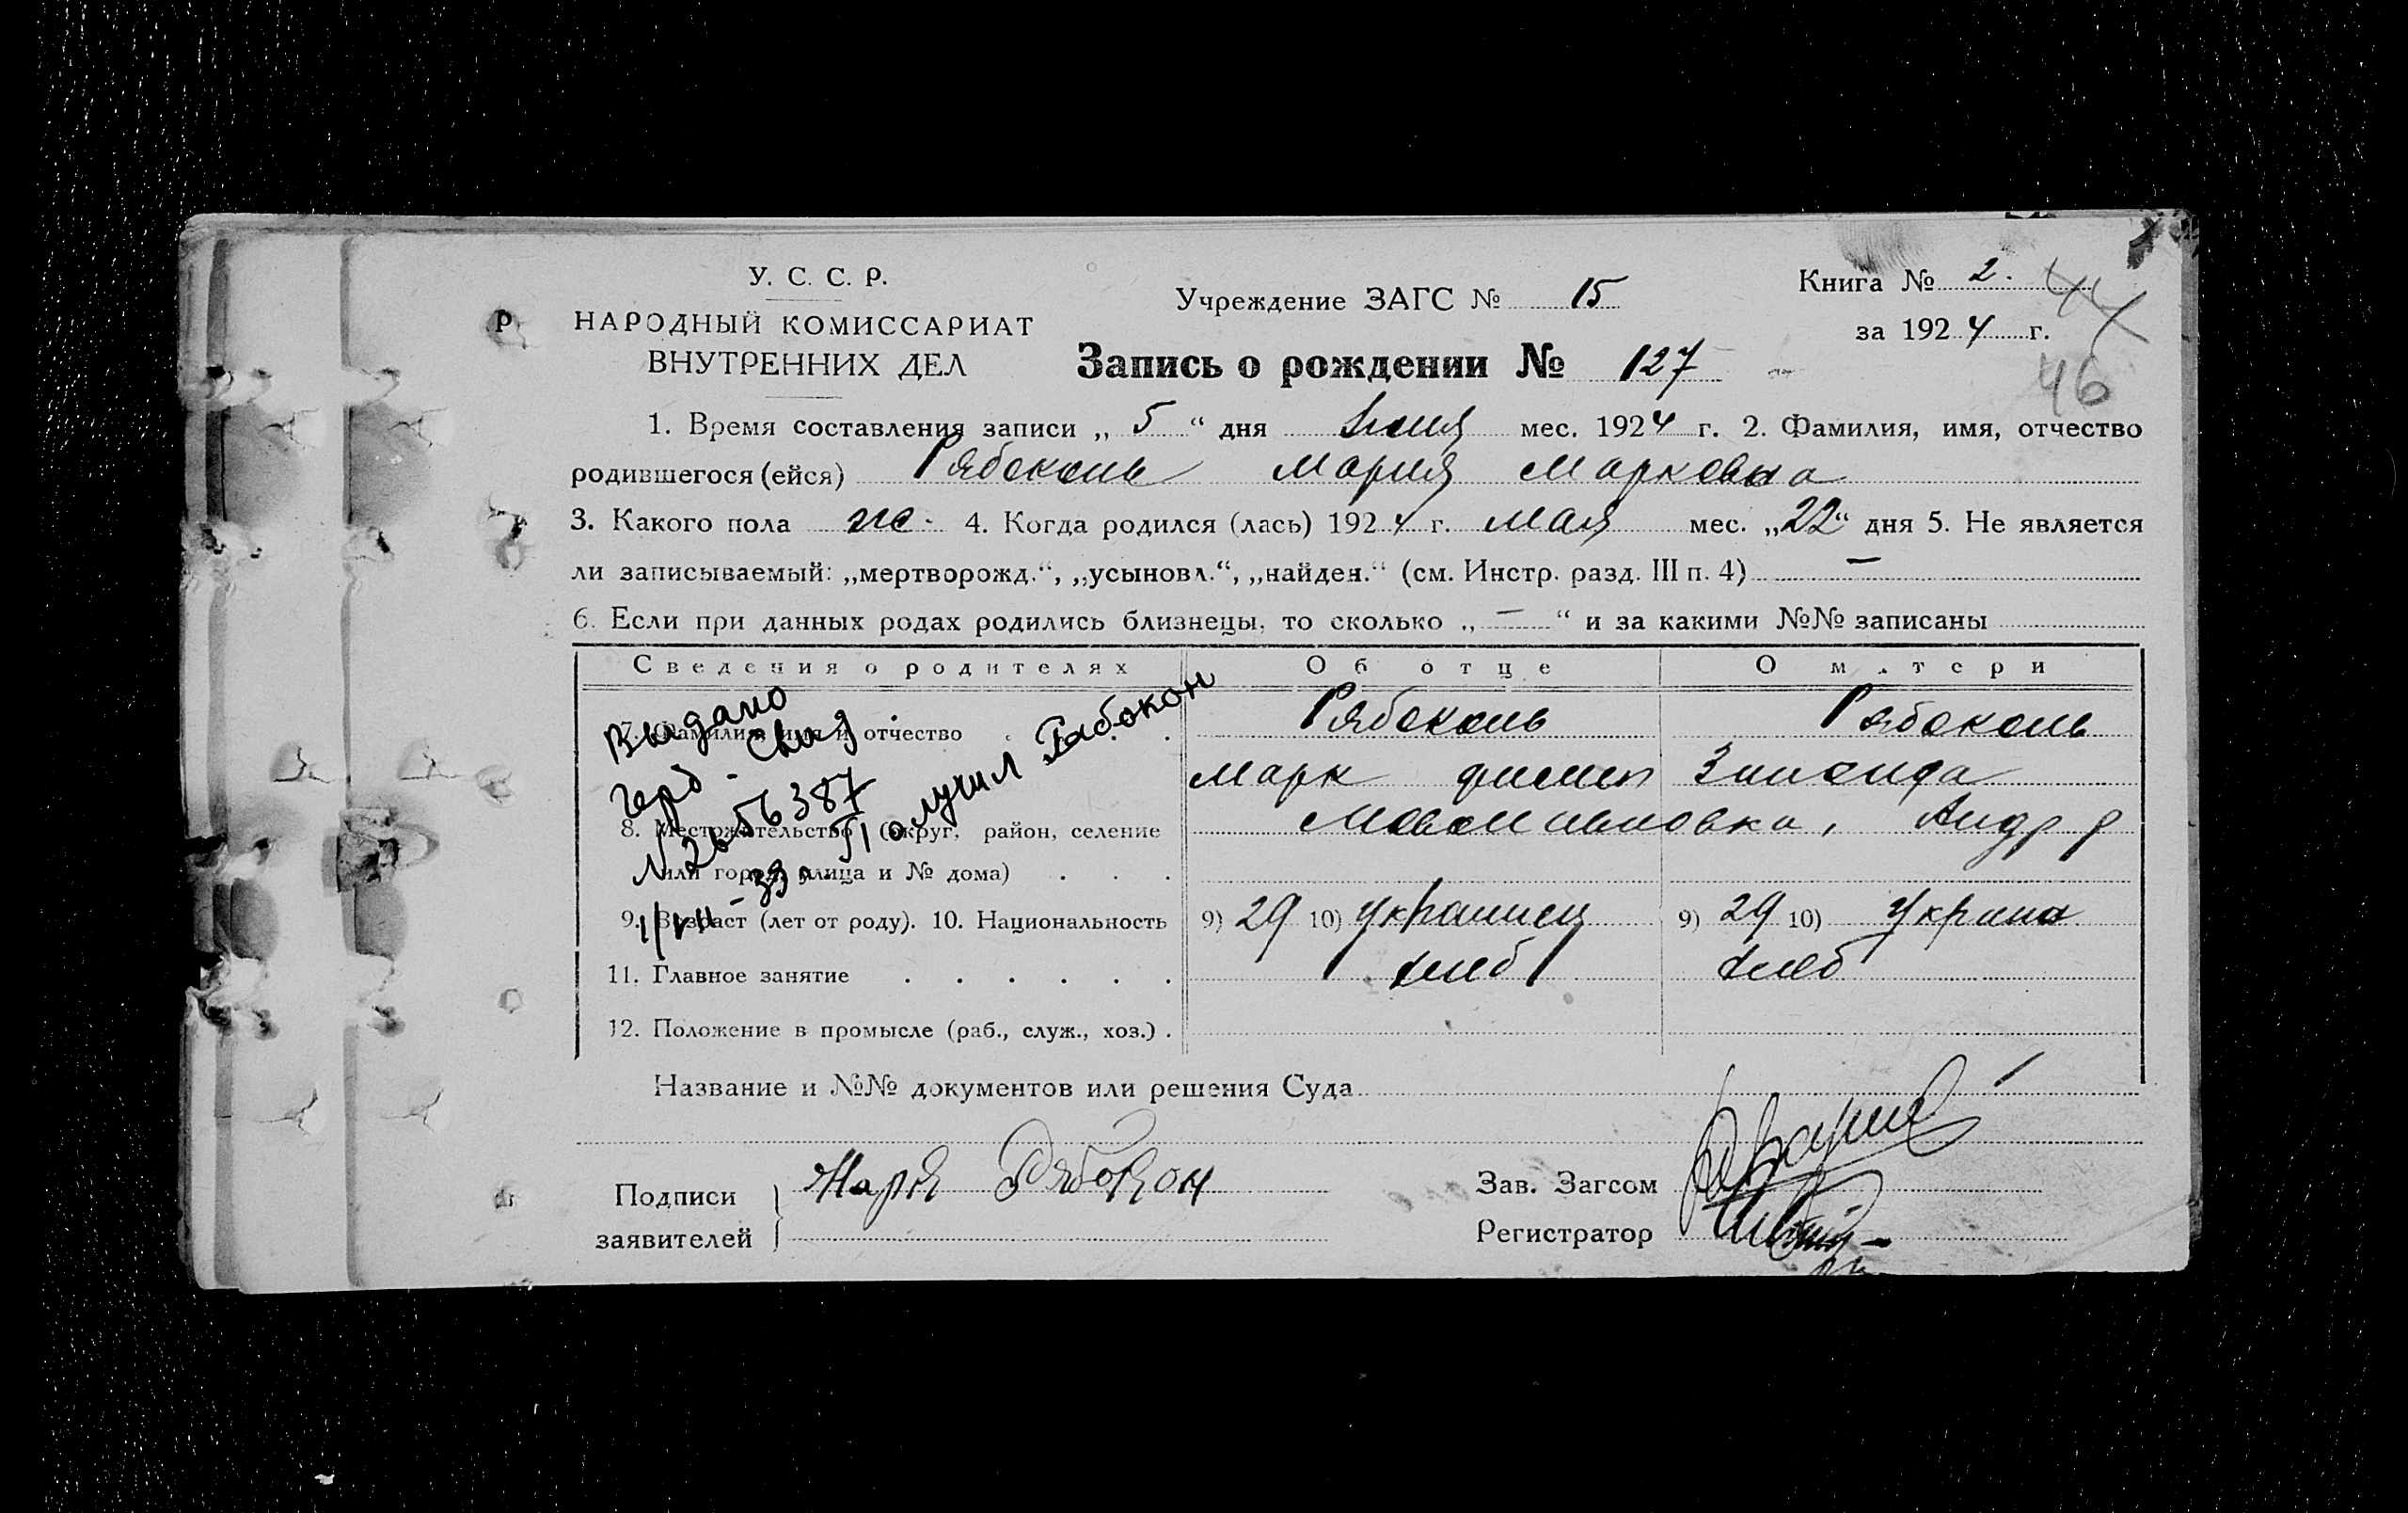 У. С. С. Р.
НАРОДНЫЙ КОМИССАРИАТ
ВНУТРЕННИХ ДЕЛ
Учреждение ЗАГС № 15
Книга № 2.
за 1924 г.
44
46
Запись о рождении № 127
1. Время составления записи „ 5 “ дня Июня мес. 1924 г. 2. Фамилия, имя, отчество
родившегося (ейся) Рябоконь Мария Марковна
3. Какого пола ж. 4. Когда родился (лась) 1924 г. мая мес. „22“ дня 5. Не является
ли записываемый: „мертворожд.“, „усыновл.“, „найден.“ (см. Инстр. разд. III п. 4) —
6. Если при данных родах родились близнецы, то сколько „ — “ и за какими №№ записаны
Сведения о родителях Об отце О матери
7. Фамилия, имя и отчество Рябоконь Рябоконь
Марк Зинаида
8. Местожительство (округ, район, селение Андр р
или город, улица и № дома)
9. Возраст (лет от роду). 10. Национальность 9) 29 10) Украинец 9) 29 10) Украин
11. Главное занятие хлеб хлеб
12. Положение в промысле (раб., служ., хоз.)
Выдано
герб - Свид
Получил Рабокон
Название и №№ документов или решения Суда
Подписи
заявителей
Марк Рябокон
Зав. Загсом
Регистратор